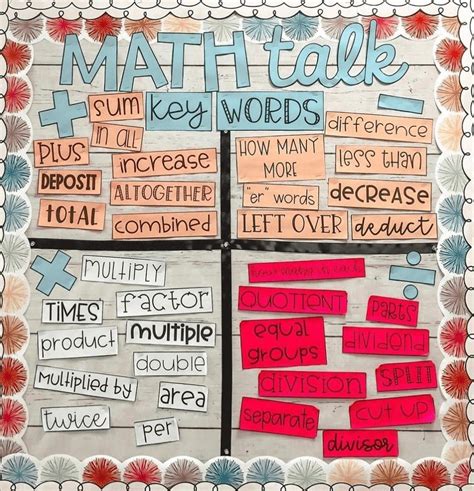 MATH talk
KEY WORDS
+
sum
in all
PLUS
increase
DEPOSIT
ALTOGETHER
TOTAL
combined
−
difference
HOW MANY MORE
less than
"er" words
decrease
LEFT OVER
deduct
×
MULTIPLY
TIMES
factor
product
multiple
double
multiplied by
area
twice
per
÷
QUOTIENT
parts
equal groups
dividend
division
SPLIT
separate
cut up
divisor